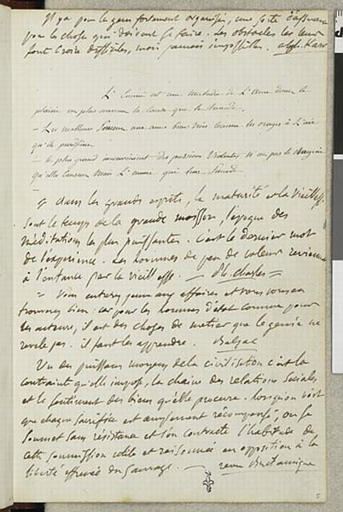 Il y a pour les gens fortement organisés, une sorte d'
pour les choses qui doivent se faire. Les obstacles les leur
font croire difficiles, mais jamais impossibles. alph. Karr
L'Ennui est une maladie de l'âme dont le
plaisir
- Les malheurs sont aux âmes bien nées comme les orages à l'air
qu'ils purifient.
- le plus grand inconvénient des passions violentes n'est pas le chagrin
qu'elles causent mais l'ennui qui leur succède.
= dans les grands esprits, la maturité et la vieillesse
sont le temps de la grande moisson, l'époque des
méditations les plus puissantes. C'est le dernier mot
de l'expérience. Les hommes de peu de valeur reviennent
à l'enfance par la vieillesse. Ph. Chasles =
= Vous entrerez jeune aux affaires et vous vous en
trouverez bien : car pour les hommes d'état comme pour
les acteurs, il est des choses de métier que le génie ne
revele pas. il faut les apprendre. Balzac
Un des puissans moyens de la civilisation c'est la
contrainte qu'elle impose, la chaine des relations sociales,
et le sentiment des biens qu'elle procure. Lorsqu'on voit
que chaque sacrifice est amplement récompensé, on se
soumet sans résistance et l'on contracte l'habitude de
cette soumission utile et raisonnée en opposition à la
liberté effrenée du sauvage. revue Britannique